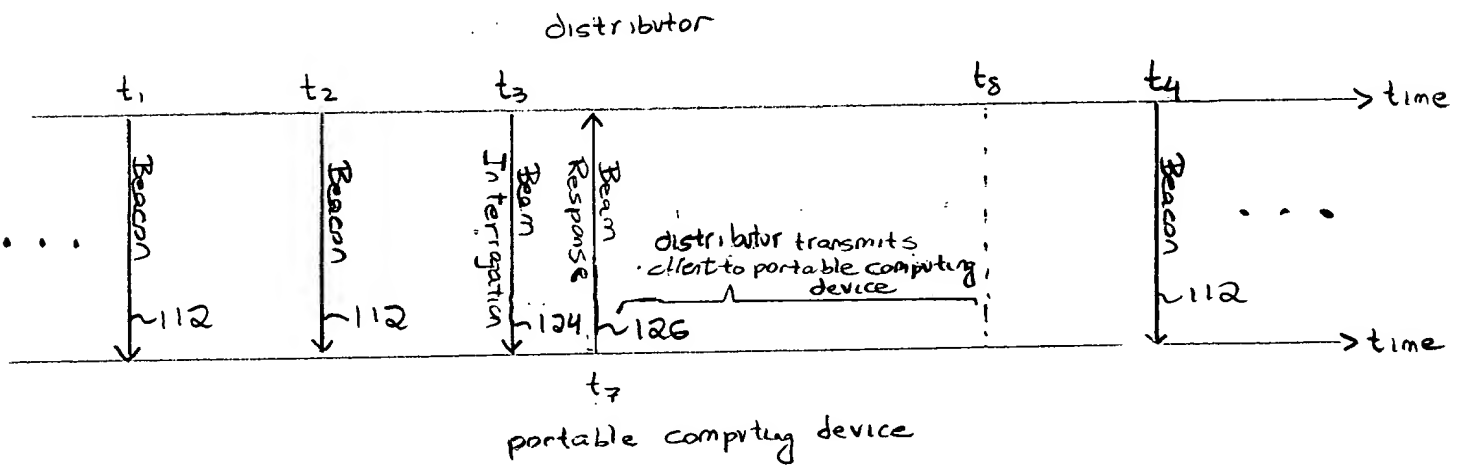 distributor
t₁ t₂ t₃ t₈ t₄ time
Beacon
Beacon
Beam
Interrogation
Beam
Response
Beacon
distributor transmits
client to portable computing
device
112 112 124 126 112
time
t₇
portable computing device